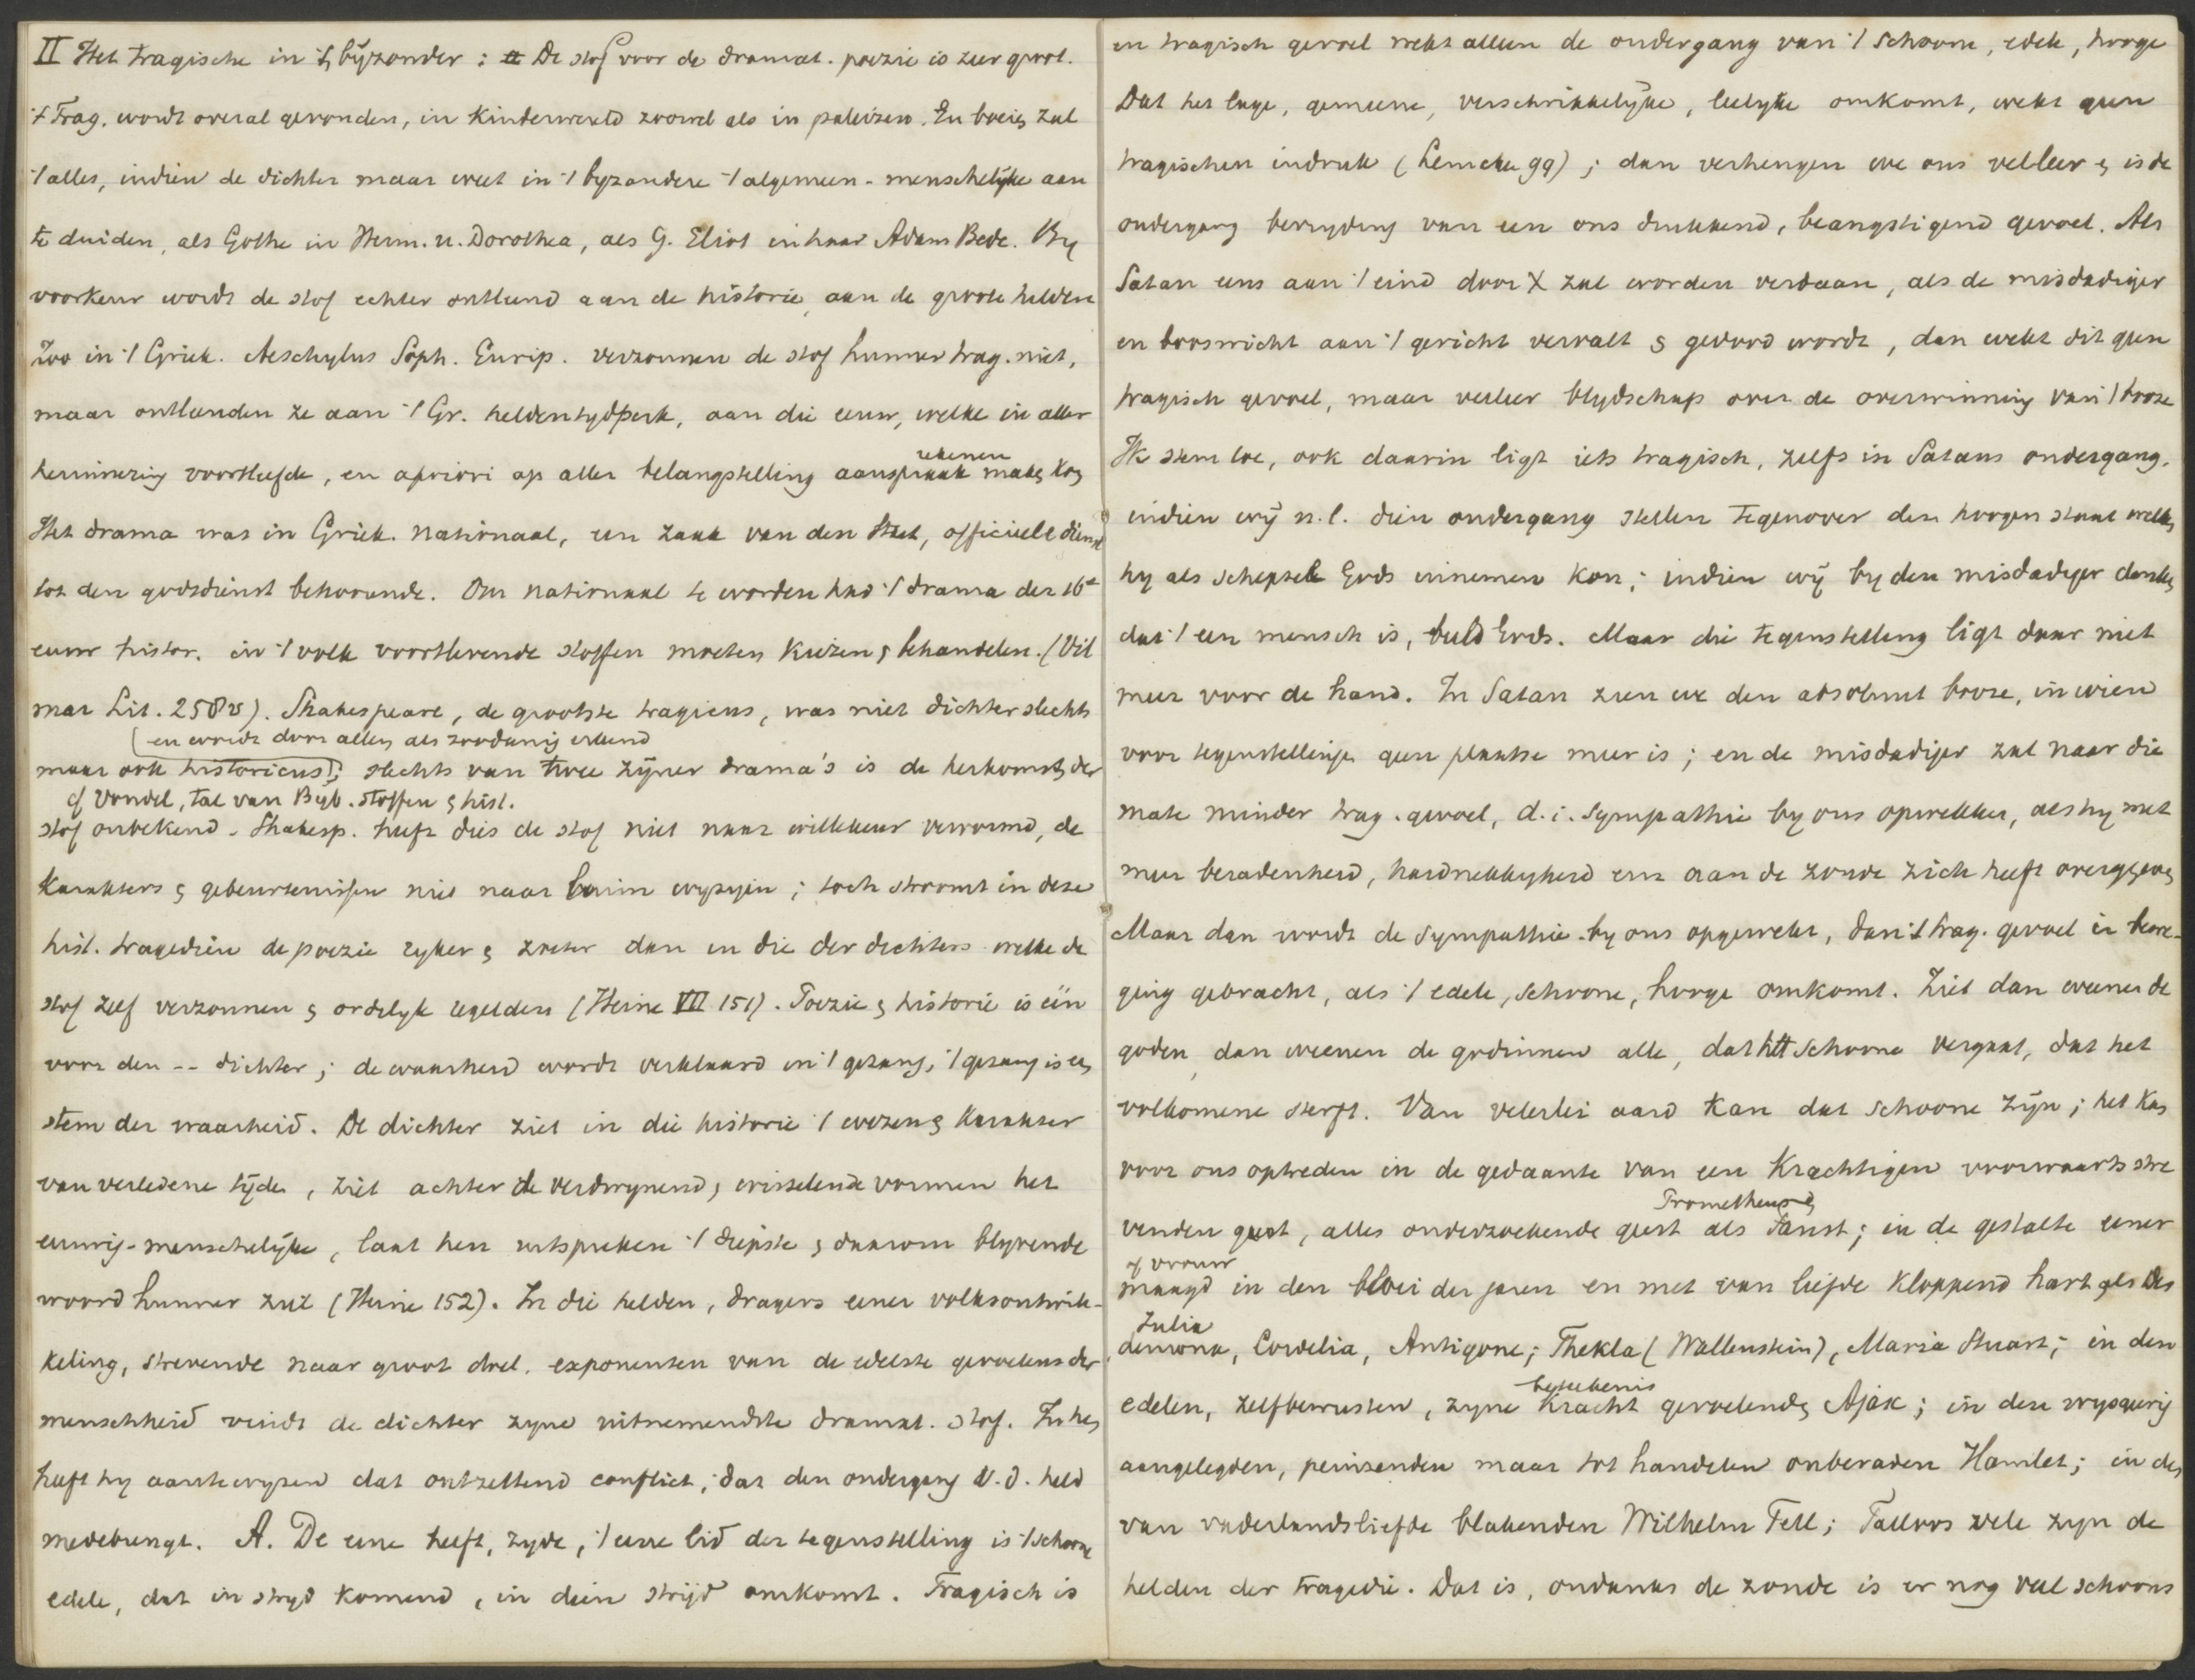 II Het tragische in 't byzonder : De stof voor de dramat. poezie is zeer groot.
't Trag. wordt overal gevonden, in kinderwereld zoowel als in paleizen. En boeien zal
't alles, indien de dichter maar weet in 't byzondere 't algemeen-menschelijke aan
te duiden, als Göthe in Herm. u. Dorothea, als G. Eliot in haar Adam Bede. By
voorkeur wordt de stof echter ontleend aan de historie, aan de groote helden
Zoo in 't Griek. Aeschylus Soph. Eurip. verzonnen de stof hunner trag. niet,
maar ontleenden ze aan 't Gr. heldentydperk, aan die eeuw, welke in aller
herinnering voortleefde, en apriori op aller belangstelling aanspraak maken kon
rekenen
Het drama was in Griek. nationaal, een zaak van den Staat, officieele dienst
tot den godsdienst behoorende. Om nationaal te worden had 't drama der 16e
eeuw histor. in 't volk voortlevende stoffen moeten kiezen & behandelen. (Vil
mar Lit. 258v). Shakespeare, de grootste tragicus, was niet dichter slechts
(en wordt door allen als zoodanig erkend
maar ook historicus); slechts van twee zijner drama's is de herkomst der
cf Vondel, tal van Byb. stoffen & hist.
stof onbekend. Shakesp. heeft dus de stof niet naar willekeur vervormd, de
karakters & gebeurtenissen niet naar luim ; toch stroomt in deze
hist. tragedien de poezie ryker & zoeter dan in die der dichters welke de
stof zelf verzonnen & ordelyk regelden (Heine VII 151). Poezie & historie is één
voor den -- dichter; de waarheid wordt verklaard in 't gezang, 't gezang is een
stem der waarheid. De dichter ziet in die historie 't wezen & karakter
van verledene tijden, ziet achter de verdwynend, wisselende vormen het
eeuwig-menschelijke, laat hen uitspreken 't diepste & daarom blyvende
woord hunner ziel (Heine 152). In die helden, dragers eener volksontwik-
keling, strevende naar groot doel, exponenten van de edelste gevoelens der
menschheid vindt de dichter zyne uitnemendste dramat. stof. In hen
heeft hy aantewyzen dat ontzettend conflict, dat den ondergang v. d. held
medebrengt. A. De eene helft, zyde, 't eene lid der tegenstelling is 't schoone
edele, dat in stryd komend, in dien strijd omkomt. Tragisch is
en tragisch gevoel wekt alleen de ondergang van 't schoone, edele, hooge
Dat het lage, gemeene, verschrikkelijke, leelyke omkomt, wekt geen
tragischen indruk (Lemcke 99); dan verheugen we ons veeleer & is de
ondergang bevryding van een ons drukkend, beangstigend gevoel. Als
Satan eens aan 't eind door X zal worden verdaan, als de misdadiger
en booswicht aan 't gericht vervalt & gedood wordt, dan wekt dit geen
tragisch gevoel, maar veeleer blydschap over de overwinning van 't booze
Ik stem toe, ook daarin ligt iets tragisch, zelfs in Satans ondergang,
indien wij n.l. dien ondergang stellen tegenover den hoogen staat welken
hy als schepsel Gods innemen kon; indien wij by den misdadiger denken
dat 't een mensch is, beeld Gods. Maar die tegenstelling ligt daar niet
meer voor de hand. In Satan zien we den absoluut booze, in wien
voor tegenstellingen geen plaatse meer is; en de misdadiger zal naar die
mate minder trag. gevoel, d.i. sympathie by ons opwekken, als hy met
meer beradenheid, hardnekkigheid enz aan de zonde zich heeft overgegeven
Maar dan wordt de sympathie by ons opgewekt, dan 't trag. gevoel in bewe-
ging gebracht, als 't edele, schoone, hooge omkomt. Ziet dan weenen de
goden, dan weenen de godinnen alle, dat het schoone vergaat, dat het
volkomene sterft. Van velerlei aard kan dat schoone zijn; het kan
voor ons optreden in de gedaante van een krachtigen voorwaarts stre
Prometheus &
venden geest, alles onderzoekende geest als Faust; in de gestalte eener
of vrouw
maagd in den bloei der jaren en met van liefde kloppend hart als Des
Julia
demona, Cordelia, Antigone; Thekla (Wallenstein), Maria Stuart; in den
beteekenis
edelen, zelfbewusten, zyne kracht gevoelenden Ajax; in den wysgeerig
aangelegden, peinzenden maar tot handelen onberaden Hamlet; in den
van vaderlandsliefde blakenden Wilhelm Tell; Talloos vele zyn de
helden der tragedie. Dat is, ondanks de zonde is er nog veel schoons